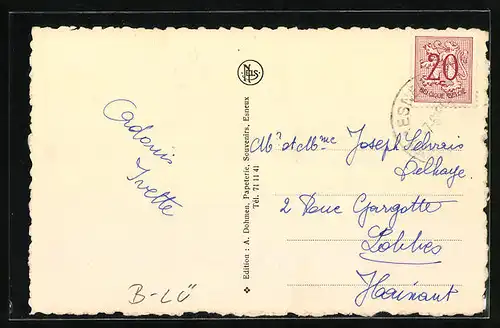 Adonis
Yvette
B-LÜ
Edition : A. Dohmen, Papeterie, Souvenirs, Esneux
Tél. 71 11 41
20
BELGIQUE BELGIE
Mr et Mme Joseph Servais
Delhaye
2 Rue Gargotte
Lobbes
Hainaut